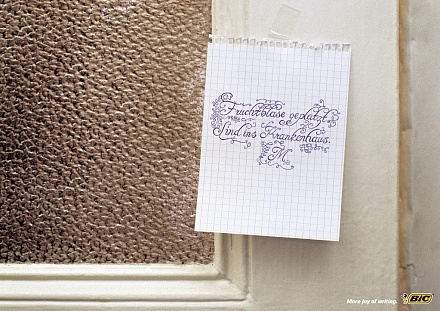 Fruchtblase geplatzt.
Sind ins Krankenhaus.
M.
More joy of writing.
BIC